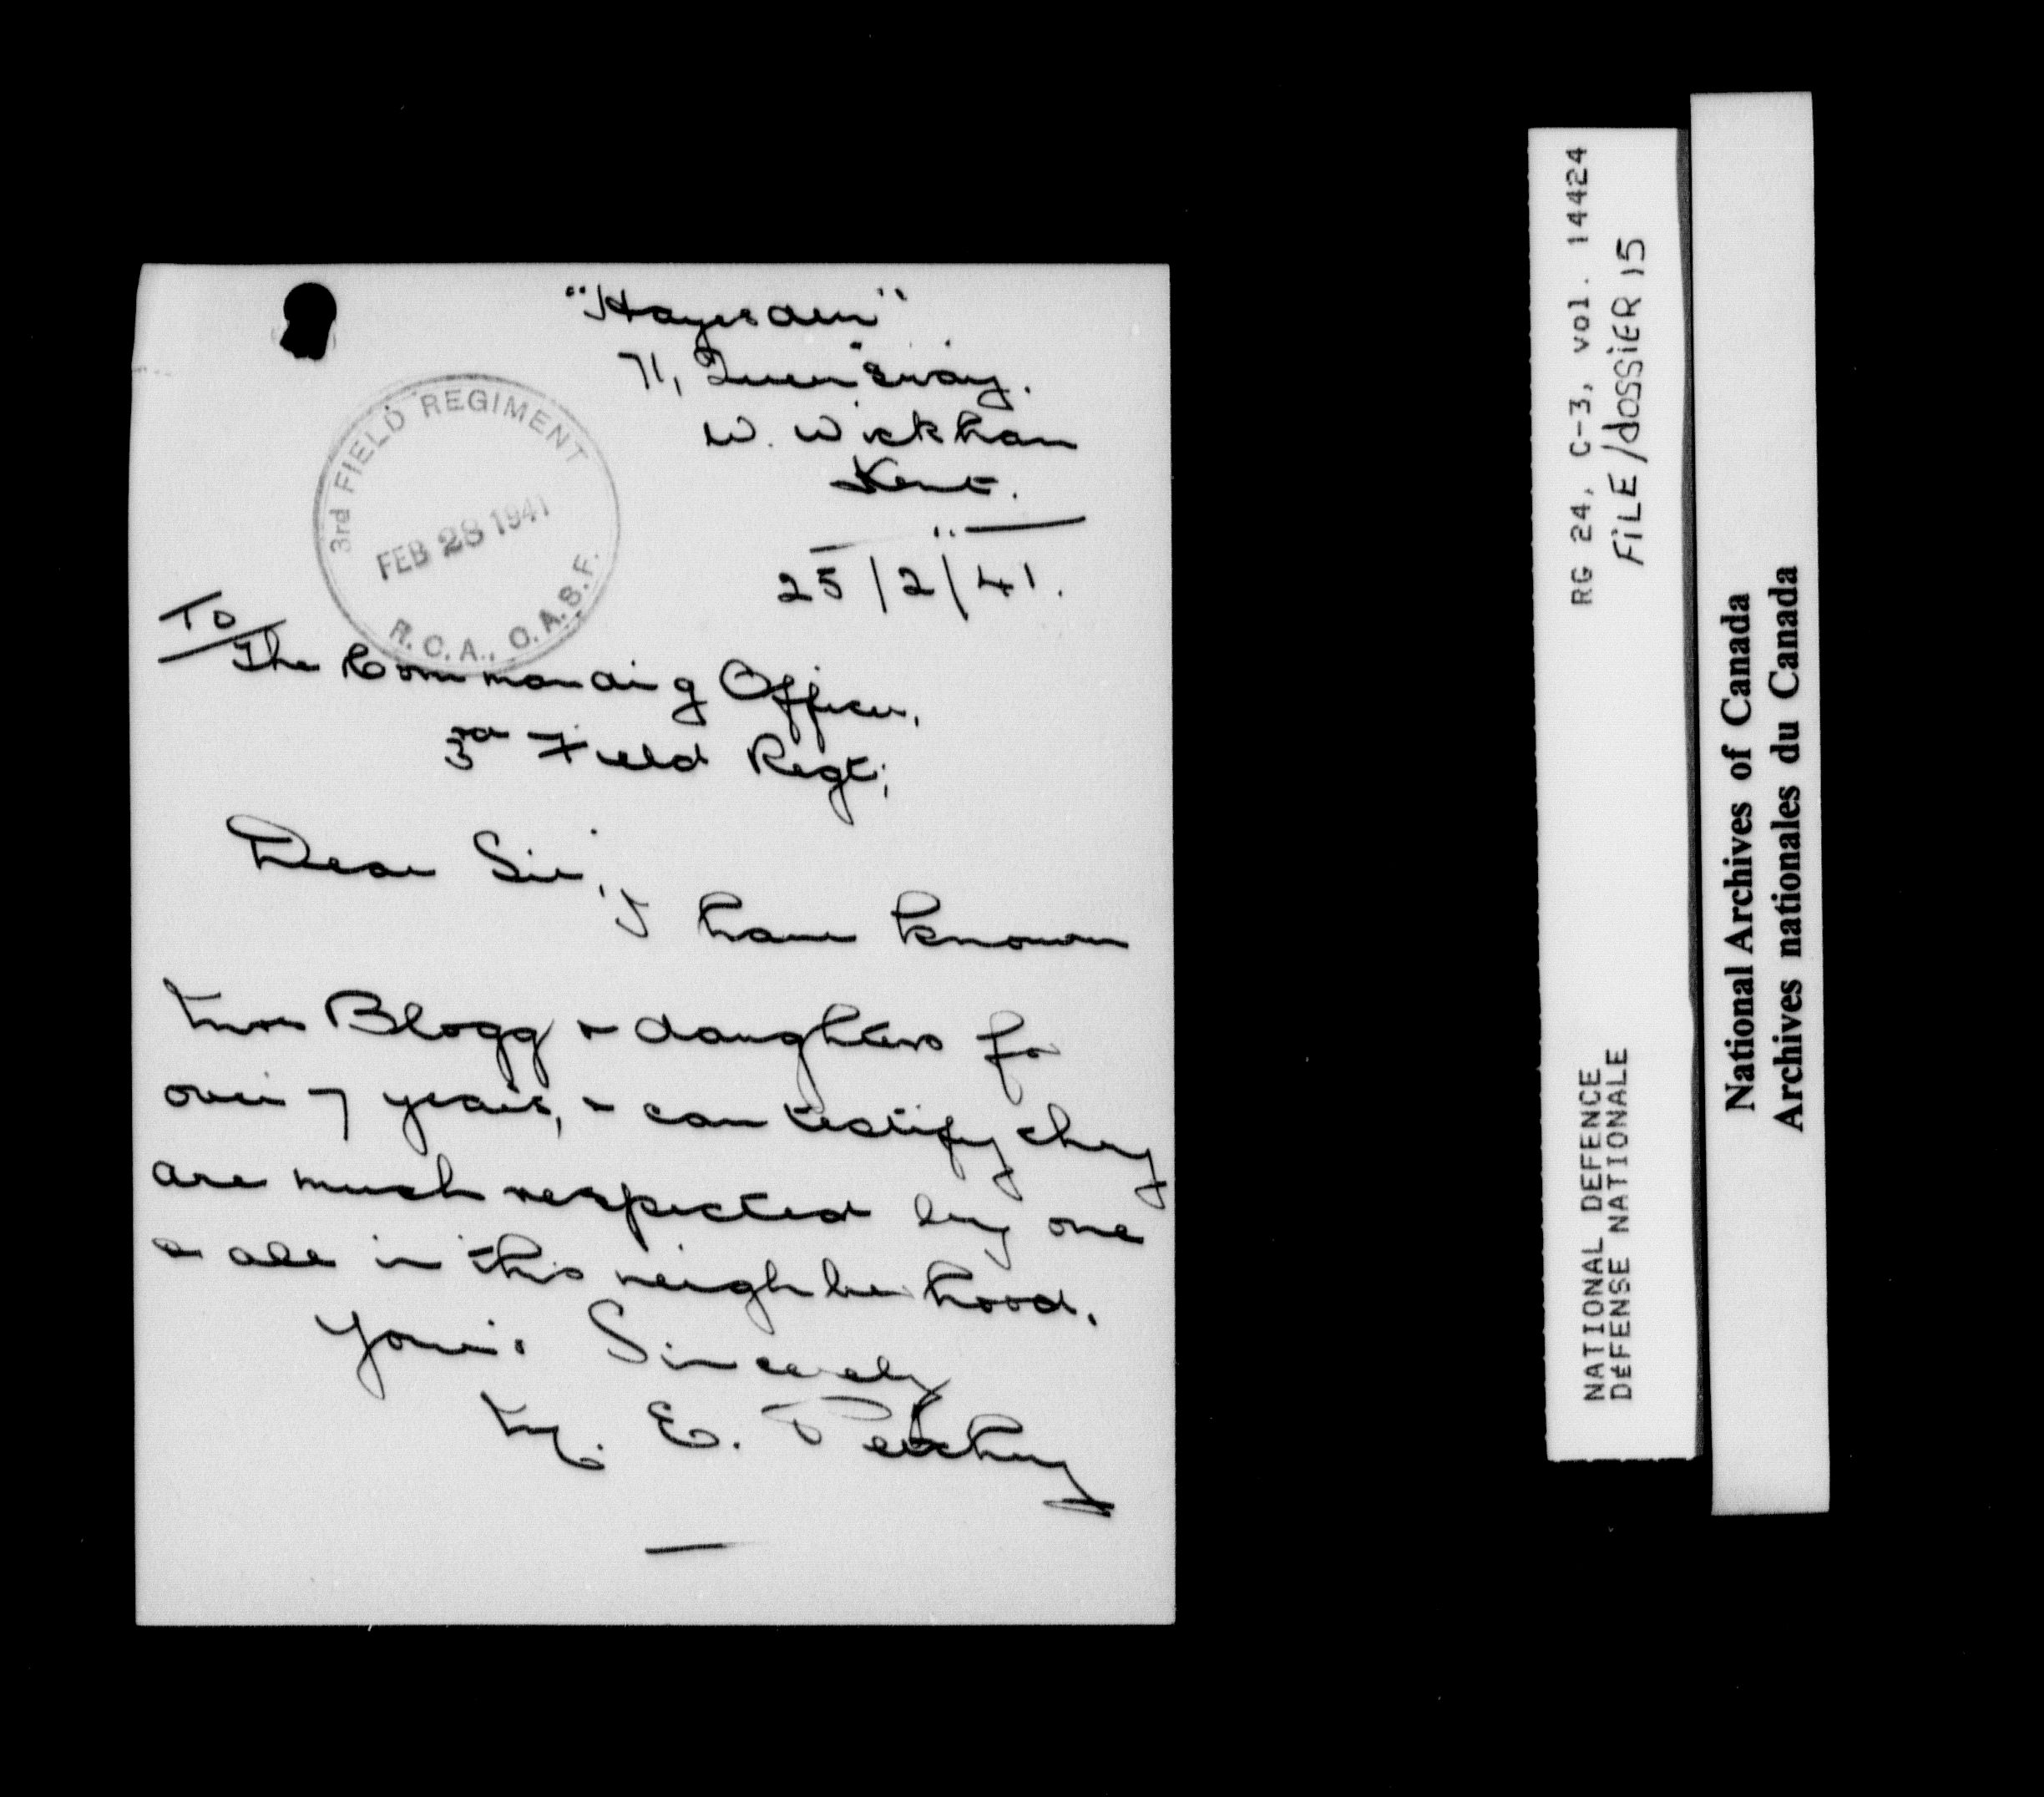 71, Queensway.
W. Wickham
Kent.
3rd FIELD REGIMENT
FEB 28 1941
R.C.A., C.A.S.F.
25/2/41.
To
The Commanding Officer,
3rd Field Regt;
Dear Sir,
I have known
Mrs Blogg & daughters for
over 7 years, & can testify they
are much respected by one
& all in this neighborhood.
Yours Sincerely
M. E.
RG 24, C-3, vol. 14424
FiLE/dossiER 15
NATIONAL DEFENCE
DéFENSE NATIONALE
National Archives of Canada
Archives nationales du Canada